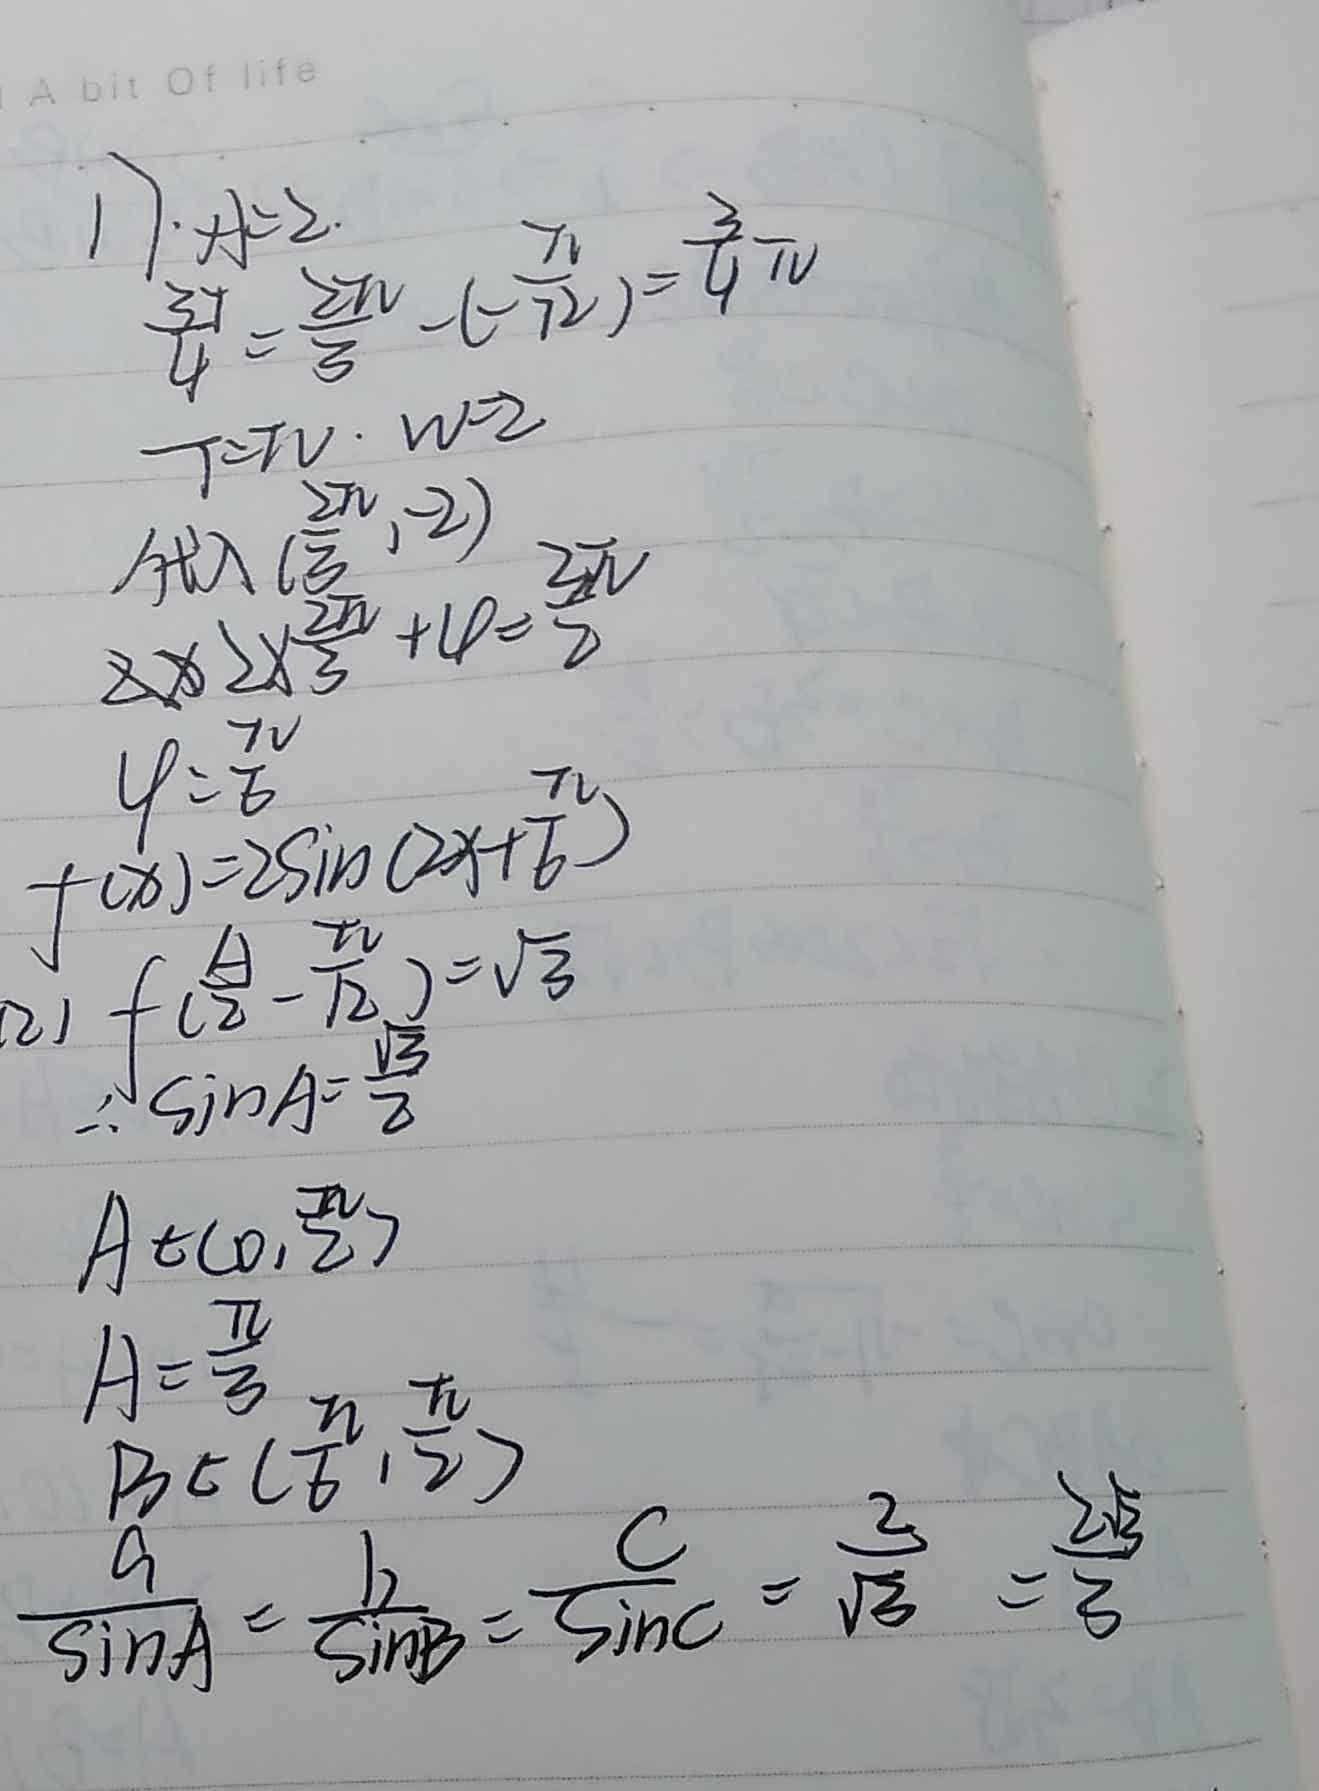 A bit Of life
1). A=2.
3T/4 = 2π/3 - (-π/12) = 3/4 π
T=π. w=2
代入 (2π/3, -2)
2×2π/3 + φ = 3π/2
φ = π/6
f(x) = 2sin(2x+π/6)
(2) f(A/2 - π/12) = √3
∴ sinA = √3/2
A∈(0, π/2)
A = π/3
B∈(π/6, π/2)
a/sinA = b/sinB = c/sinC = 2/√3 = 2√3/3